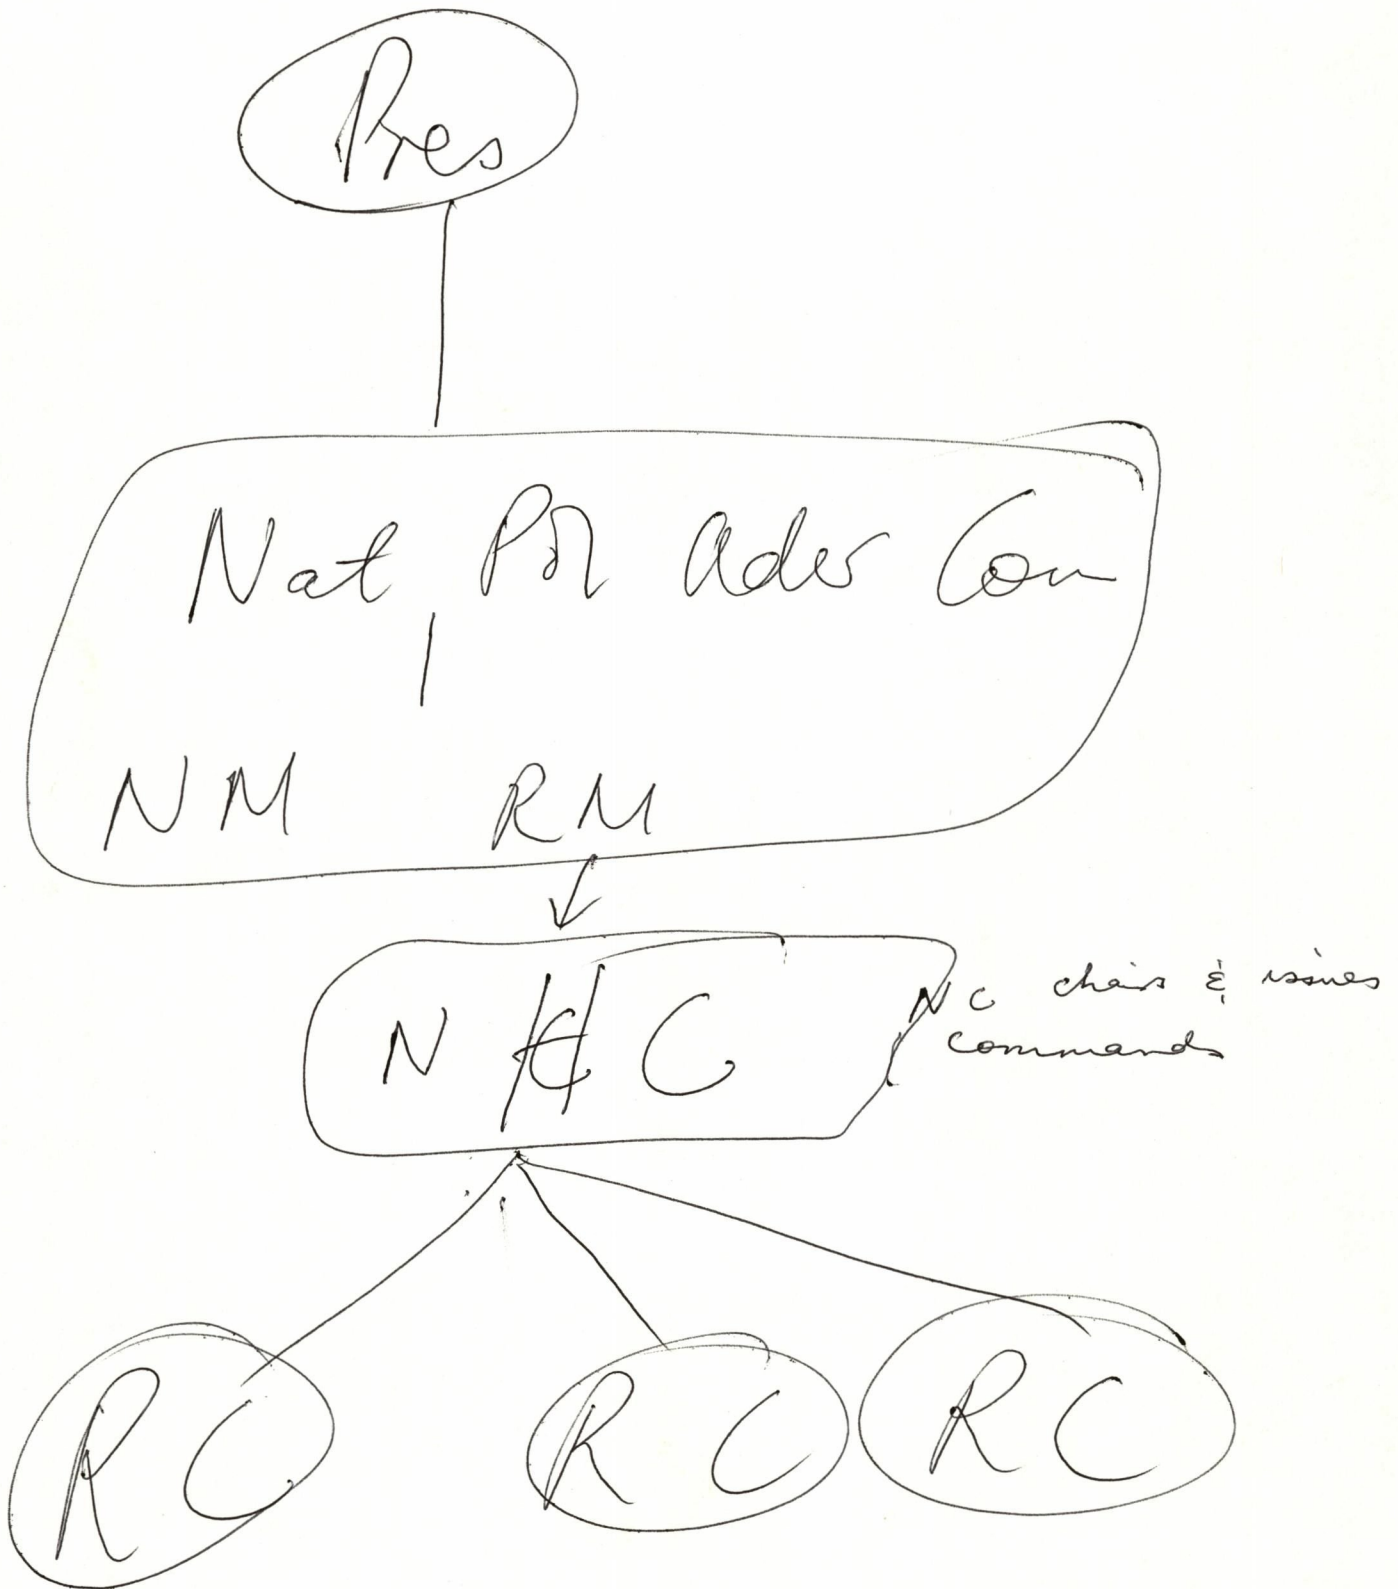 Pres
Nat Pol Adv Com
NM RM
N C C
NC chairs & issues
commands
RC RC RC